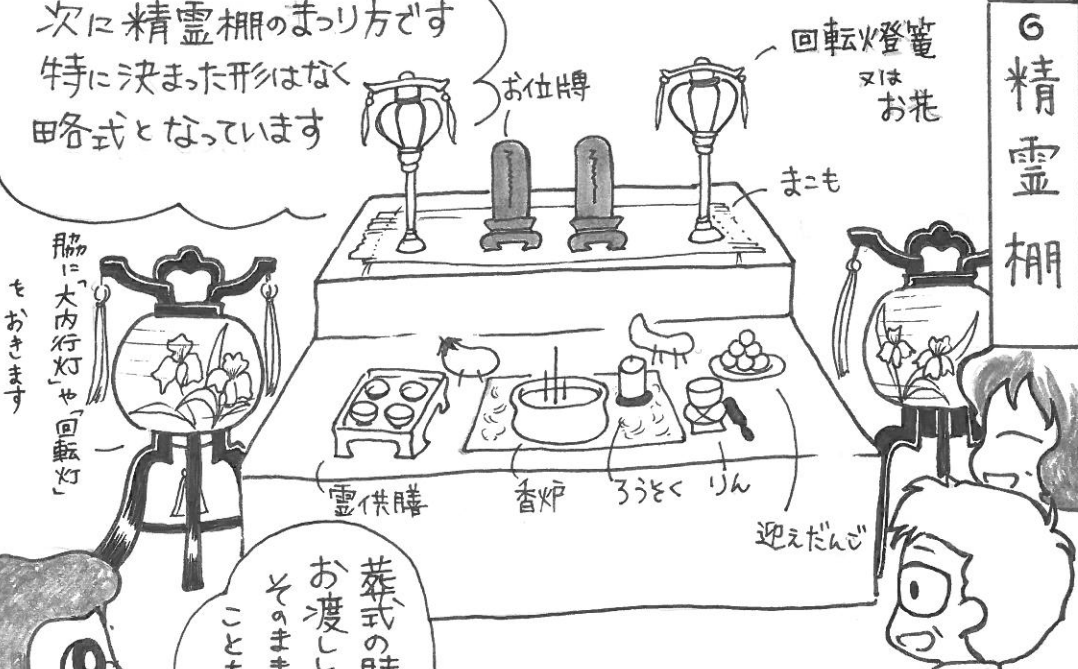 ⑥精霊棚
次に精霊棚のまつり方です
特に決まった形はなく
略式となっています
回転燈篭
又は
お花
お位牌
まこも
脇に「大内行灯」や「回転灯」
をおきます
霊供膳
香炉
ろうそく
りん
迎えだんご
葬式の時
お渡しし
そのまま
こと